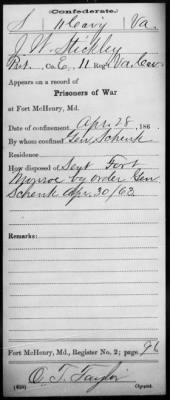 (Confederate.)
S 11 Cavy Va.
J. W. Stickley
Pvt., Co. E, 11 Reg't Va. Cav.
Appears on a record of
Prisoners of War
at Fort McHenry, Md.
Date of confinement Apr. 28, 186
By whom confined Gen. Schenk
Residence
How disposed of Sent Fort
Monroe by order Gen.
Schenk Apr. 30/63.
Remarks:
Fort McHenry, Md., Register No. 2; page 96
O. T. Taylor
(639) Copyist.